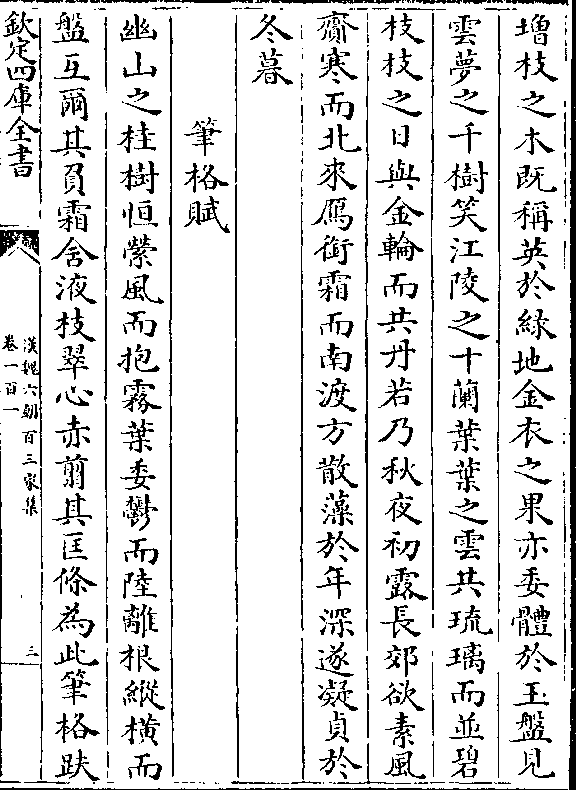 增枝之木既稱英於綠地金衣之果亦委體於玉盤見
雲夢之千樹笑江陵之十蘭葉葉之雲共琉璃而並碧
枝枝之日與金輪而共丹若乃秋夜初露長郊欲素風
齎寒而北來鴈銜霜而南渡方散藻於年深遂凝貞於
冬暮
筆格賦
幽山之桂樹恒縈風而抱霧葉委鬱而陸離根縱橫而
盤互爾其負霜含液枝翠心赤翦其匡條為此筆格趺
欽定四庫全書
漢魏六朝百三家集
卷一百一
三